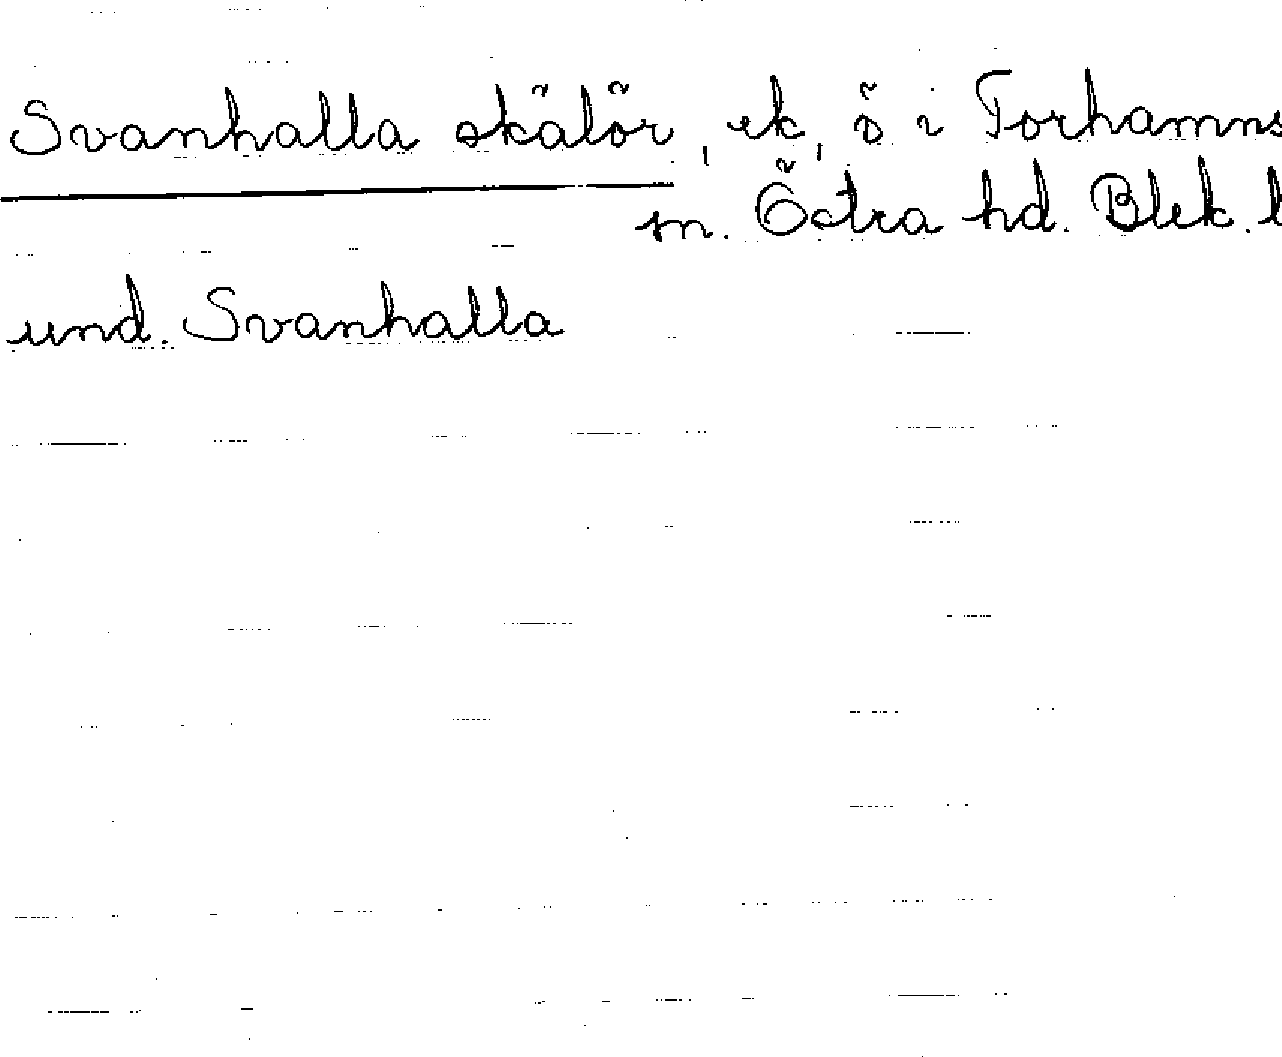 Svanhalla skälör, ek, ö i Torhamns
sn. Östra hd. Blek. l
und. Svanhalla